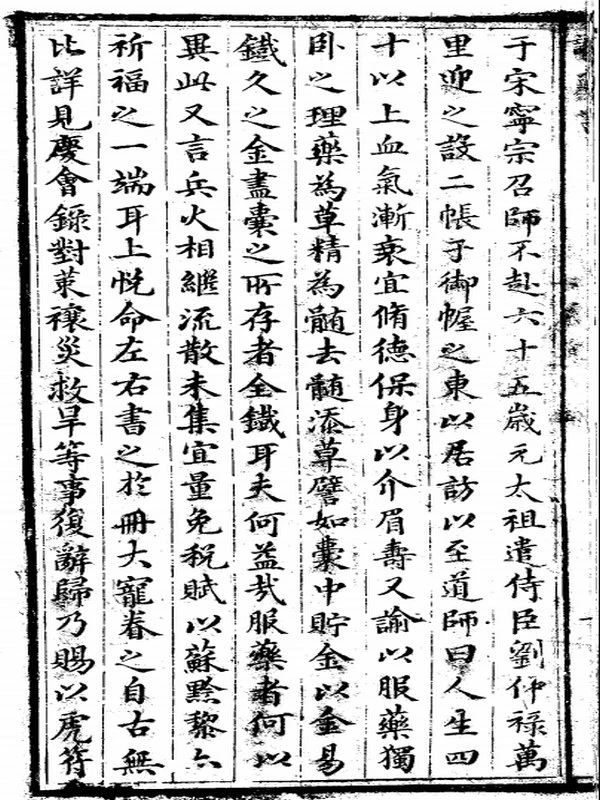 于宋寧宗召師不赴六十五歲元太祖遣侍臣劉仲祿萬
里迎之設二帳于御幄之東以居訪以至道師曰人生四
十以上血氣漸衰宜脩德保身以介眉壽又諭以服藥獨
卧之理藥為草精為髓去髓添草譬如囊中貯金以金易
鐵久之金盡囊之所存者全鐵耳夫何益哉服藥者何以
異此又言兵火相繼流散未集宜量免稅賦以蘇黔黎亦
祈福之一端耳上悅命左右書之於冊大寵眷之自古無
比詳見慶會錄對策禳災救旱等事復辭歸乃賜以虎符